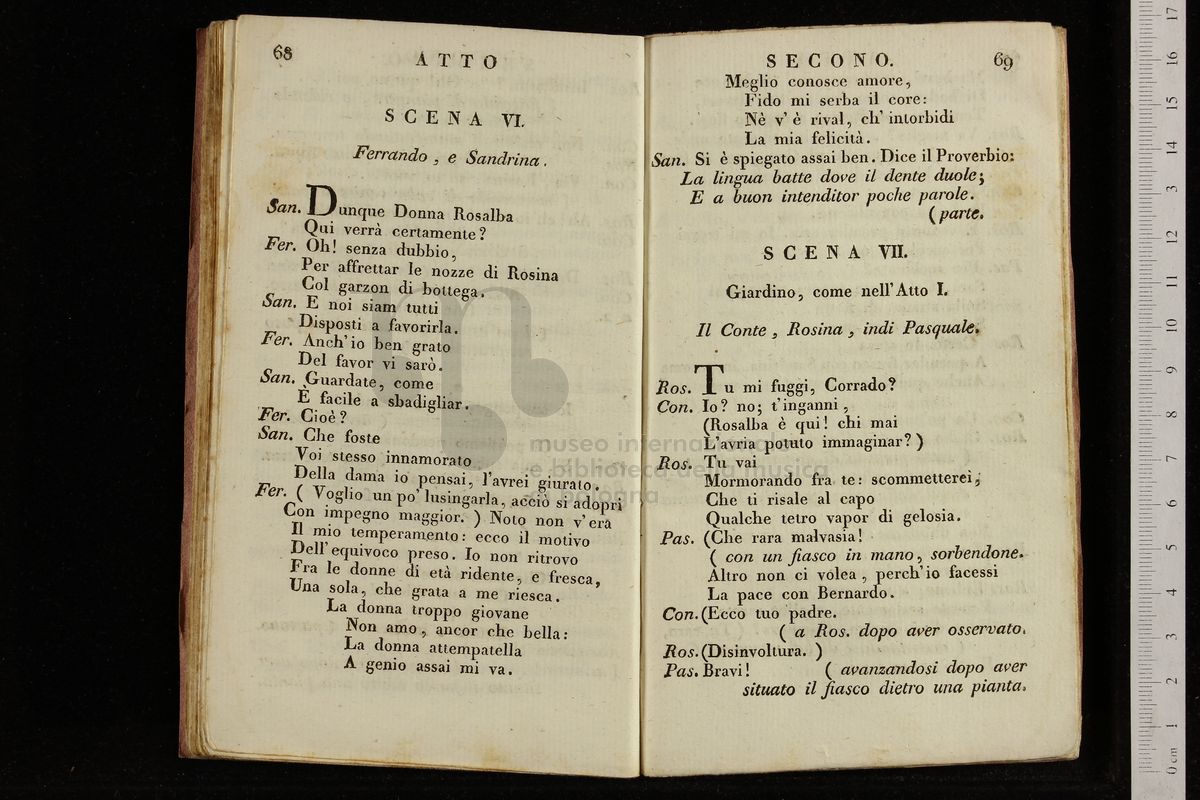 68
ATTO
SCENA VI.
Ferrando, e Sandrina.
San. Dunque Donna Rosalba
Qui verrà certamente?
Fer. Oh! senza dubbio,
Per affrettar le nozze di Rosina
Col garzon di bottega.
San. E noi siam tutti
Disposti a favorirla.
Fer. Anch'io ben grato
Del favor vi sarò.
San. Guardate, come
È facile a sbadigliar.
Fer. Cioè?
San. Che foste
Voi stesso innamorato
Della dama io pensai, l'avrei giurato.
Fer. ( Voglio un po' lusingarla, acciò si adopri
Con impegno maggior. ) Noto non v'era
Il mio temperamento: ecco il motivo
Dell'equivoco preso. Io non ritrovo
Fra le donne di età ridente, e fresca,
Una sola, che grata a me riesca.
La donna troppo giovane
Non amo, ancor che bella:
La donna attempatella
A genio assai mi va.
SECONO.
69
Meglio conosce amore,
Fido mi serba il core:
Nè v'è rival, ch'intorbidi
La mia felicità.
San. Si è spiegato assai ben. Dice il Proverbio:
La lingua batte dove il dente duole;
E a buon intenditor poche parole.
(parte.
SCENA VII.
Giardino, come nell'Atto I.
Il Conte, Rosina, indi Pasquale.
Ros. Tu mi fuggi, Corrado?
Con. Io? no; t'inganni,
(Rosalba è qui! chi mai
L'avria potuto immaginar?)
Ros. Tu vai
Mormorando fra te: scommetterei,
Che ti risale al capo
Qualche tetro vapor di gelosia.
Pas. (Che rara malvasia!
( con un fiasco in mano, sorbendone.
Altro non ci volea, perch'io facessi
La pace con Bernardo.
Con. (Ecco tuo padre.
( a Ros. dopo aver osservato.
Ros. (Disinvoltura. )
Pas. Bravi! ( avanzandosi dopo aver
situato il fiasco dietro una pianta.
museo internazionale
e biblioteca della musica
di bologna
0 cm 1 2 3 4 5 6 7 8 9 10 11 12 13 14 15 16 17